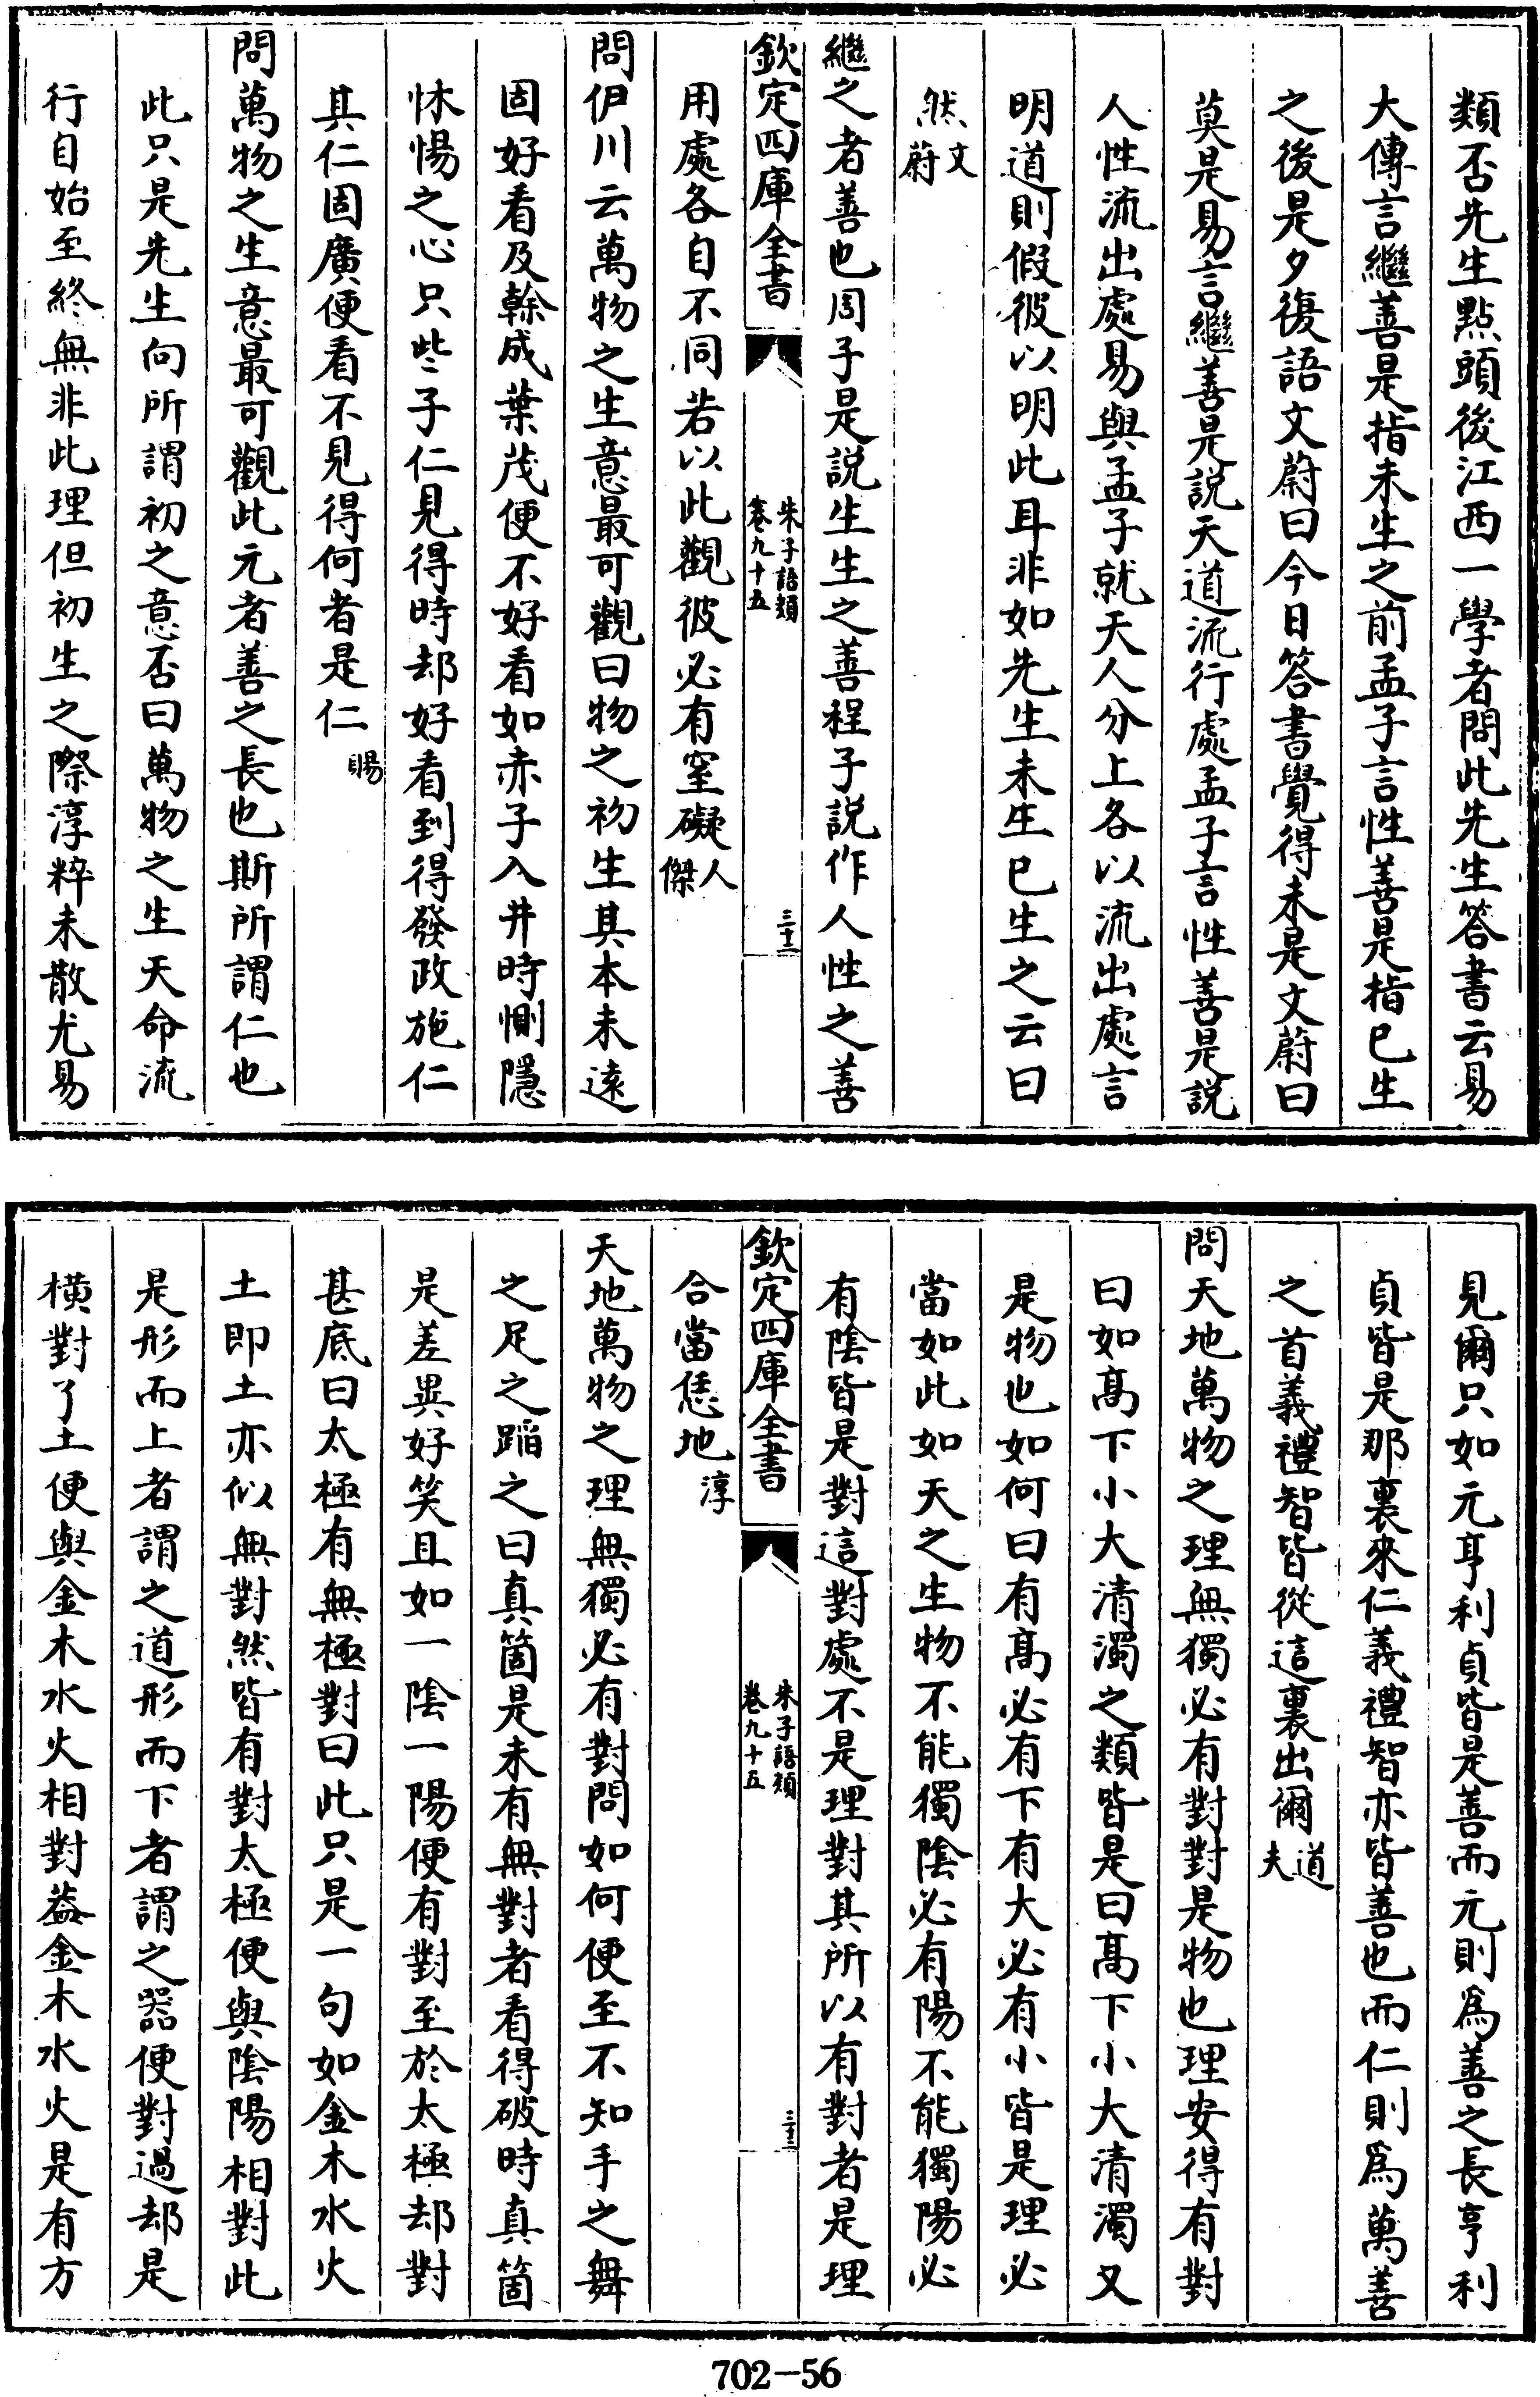 類否先生㸃頭後江西一學者問此先生答書云易
大傳言繼善是指未生之前孟子言性善是指已生
之後是夕復語文蔚曰今日答書覺得未是文蔚曰
莫是易言繼善是説天道流行處孟子言性善是説
人性流出處易與孟子就天人分上各以流出處言
明道則假彼以明此耳非如先生未生已生之云曰
然文蔚
繼之者善也周子是説生生之善程子説作人性之善
欽定四庫全書
朱子語類
卷九十五
三十二
用處各自不同若以此觀彼必有窒礙人傑
問伊川云萬物之生意最可觀曰物之初生其本未遠
固好看及榦成葉茂便不好看如赤子入井時惻隱
怵惕之心只些子仁見得時却好看到得發政施仁
其仁固廣便看不見得何者是仁賜
問萬物之生意最可觀此元者善之長也斯所謂仁也
此只是先生向所謂初之意否曰萬物之生天命流
行自始至終無非此理但初生之際淳粹未散尤易
見爾只如元亨利貞皆是善而元則爲善之長亨利
貞皆是那裏來仁義禮智亦皆善也而仁則爲萬善
之首義禮智皆從這裏出爾道夫
問天地萬物之理無獨必有對對是物也理安得有對
曰如髙下小大清濁之類皆是曰髙下小大清濁又
是物也如何曰有髙必有下有大必有小皆是理必
當如此如天之生物不能獨陰必有陽不能獨陽必
有陰皆是對這對處不是理對其所以有對者是理
欽定四庫全書
朱子語類
卷九十五
三十三
合當恁地淳
天地萬物之理無獨必有對問如何便至不知手之舞
之足之蹈之曰真箇是未有無對者看得破時真箇
是差異好笑且如一陰一陽便有對至於太極却對
甚底曰太極有無極對曰此只是一句如金木水火
土即土亦似無對然皆有對太極便與陰陽相對此
是形而上者謂之道形而下者謂之器便對過却是
橫對了土便與金木水火相對葢金木水火是有方
702-56